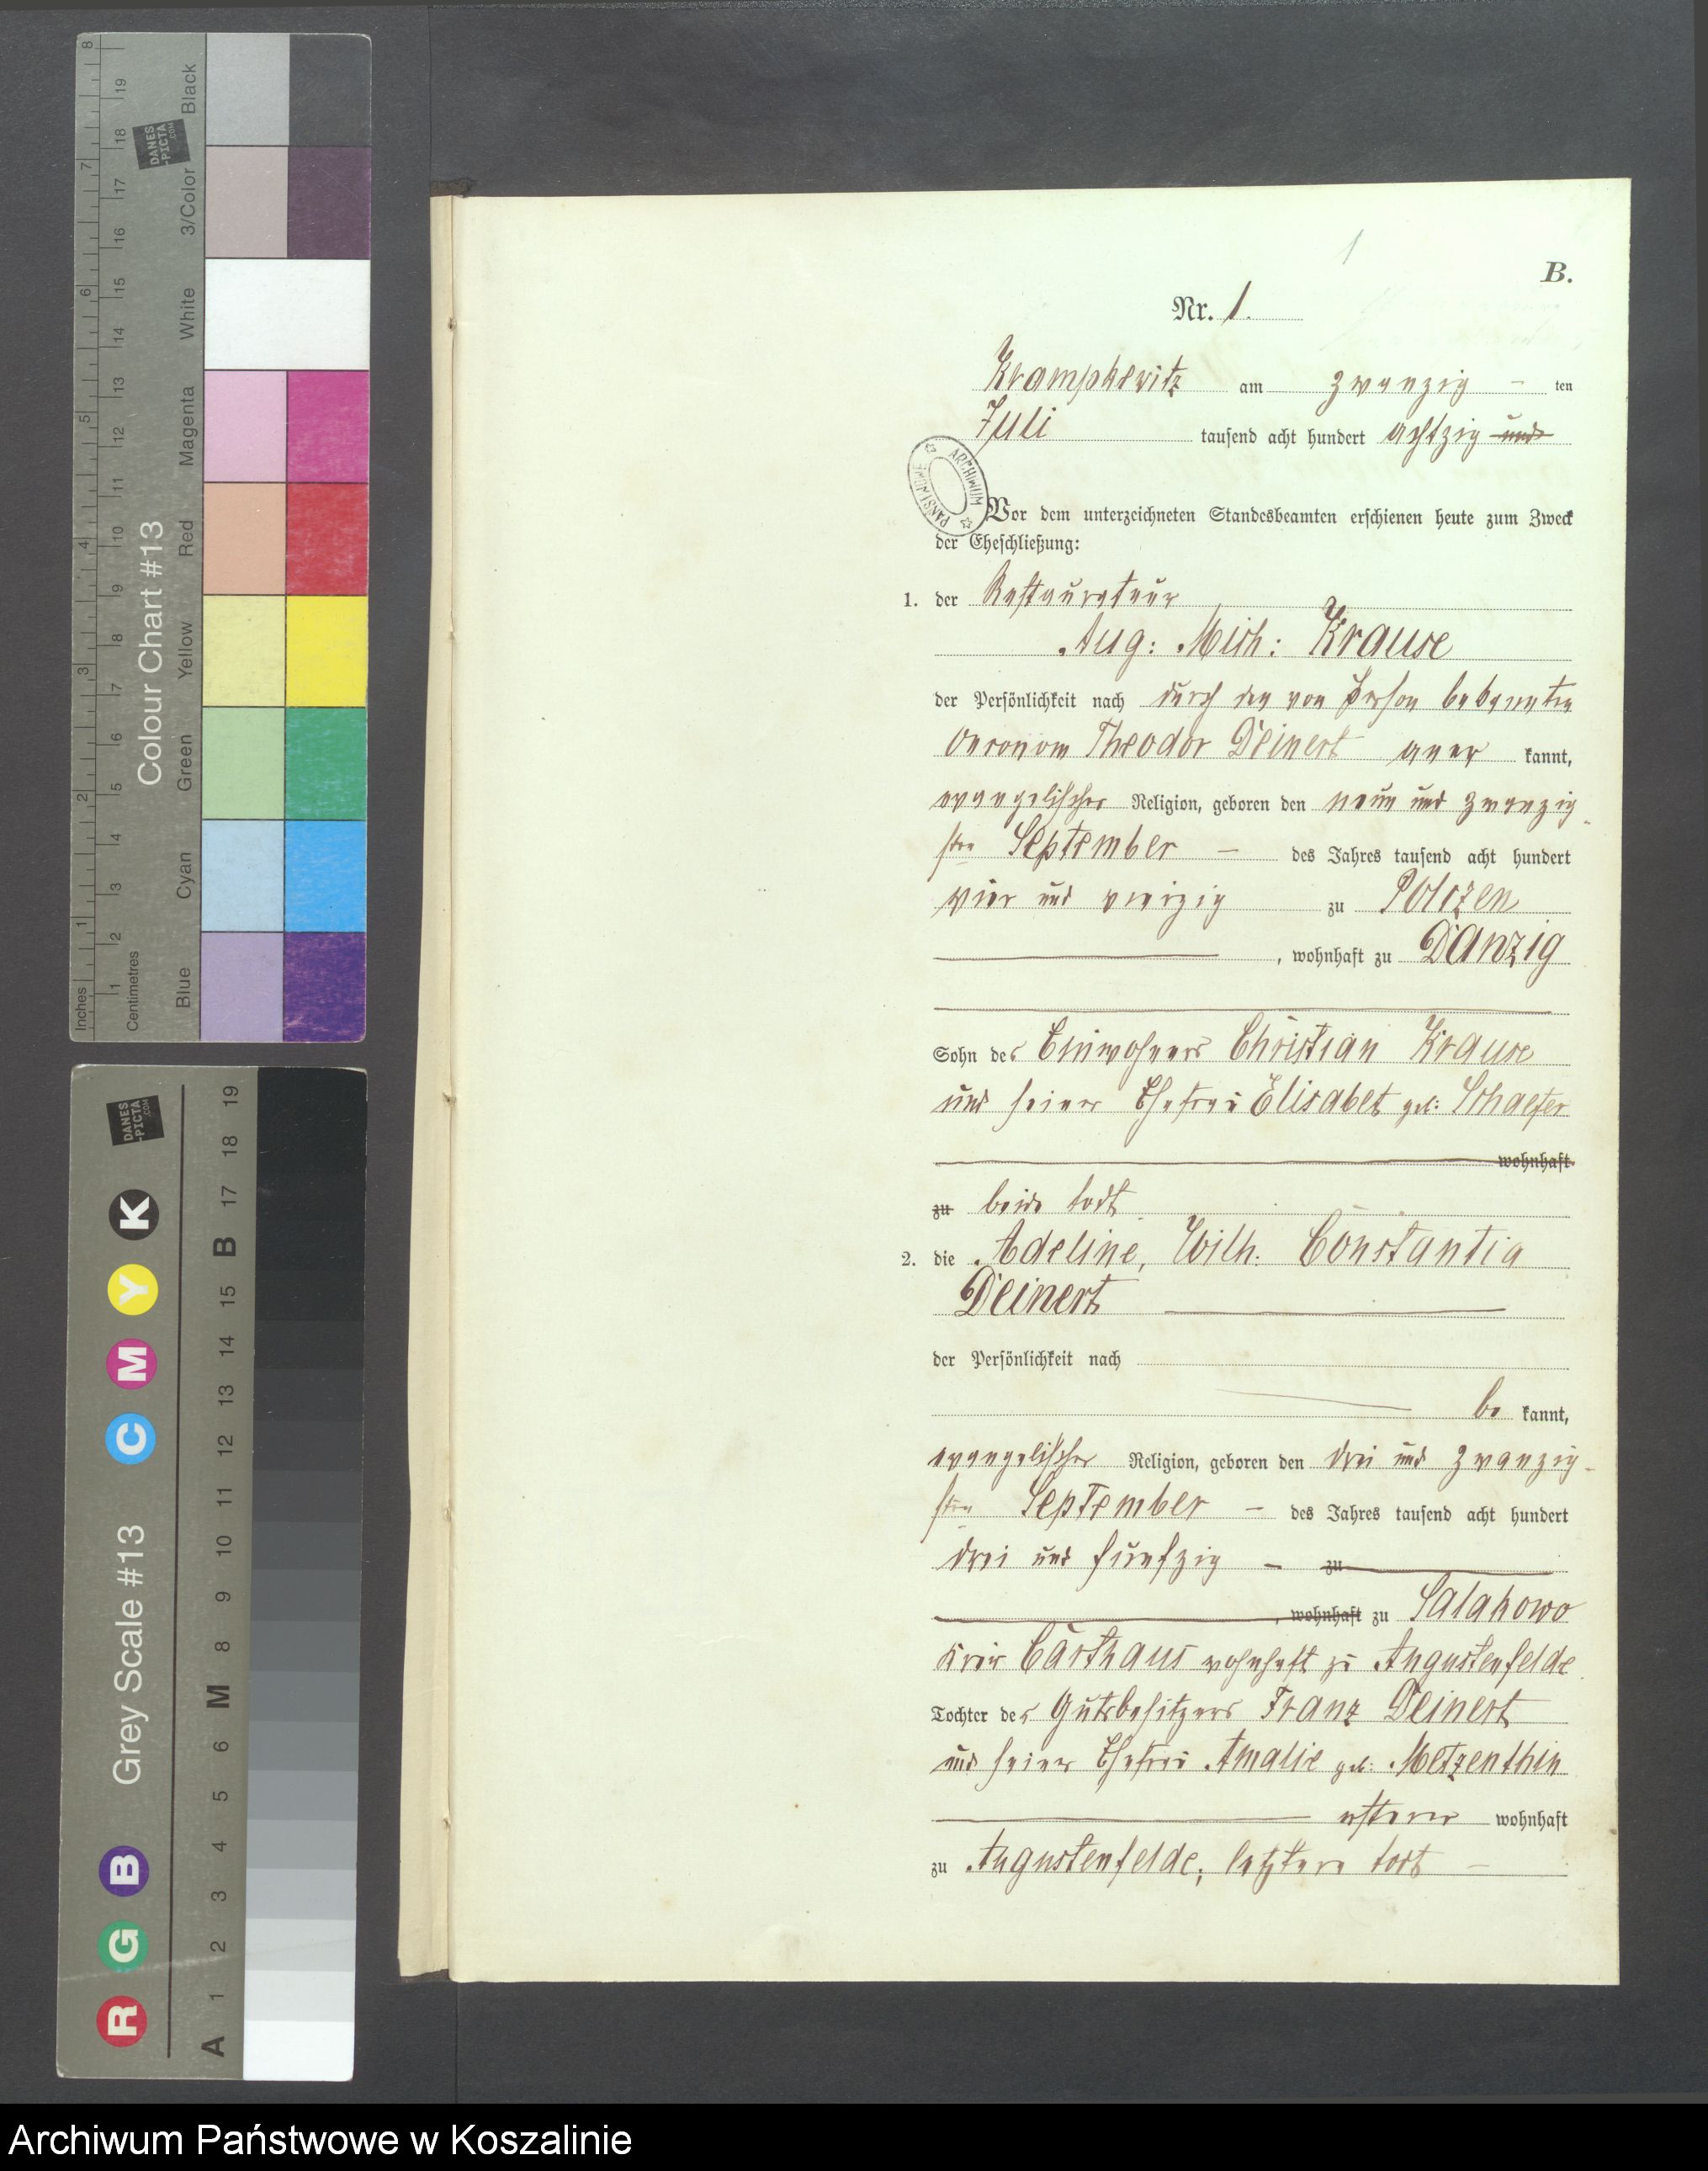 1
B.
Nr. 1.
Krampkewitz am zwanzig – ten
Juli tausend acht hundert achtzig und
ARCHIWUM PAŃSTWOWE
Vor dem unterzeichneten Standesbeamten erschienen heute zum Zweck
der Eheschließung:
1. der Restaurateur
Aug: Mich: Krause
der Persönlichkeit nach durch den von Person bekannten
Oeconom Theodor Deinert aner kannt,
evangelischer Religion, geboren den neun und zwanzig-
sten September – des Jahres tausend acht hundert
vier und vierzig zu Polczen
, wohnhaft zu Danzig
Sohn des Einwohners Christian Krause
und seiner Ehefrau Elisabet geb: Schaefer
wohnhaft
zu beide todt
2. die Adeline, Wilh: Constantia
Deinert
der Persönlichkeit nach
be kannt,
evangelischer Religion, geboren den drei und zwanzig-
sten September – des Jahres tausend acht hundert
drei und fünfzig – zu
, wohnhaft zu Salakowo
Kreis Carthaus wohnhaft zu Augustenfelde
Tochter des Gutsbesitzers Franz Deinert
und seiner Ehefrau Amalie geb: Metzenthin
ersterer wohnhaft
zu Augustenfelde, letztere todt –
Colour Chart #13
Inches
Centimetres
Blue Cyan Green Yellow Red Magenta White 3/Color Black
1 2 3 4 5 6 7 8
1 2 3 4 5 6 7 8 9 10 11 12 13 14 15 16 17 18 19
DANES
-PICTA
.COM
Grey Scale #13
R G B C M Y K
A 1 2 3 4 5 6 M 8 9 10 11 12 13 14 15 B 17 18 19
DANES
-PICTA
.COM
Archiwum Państwowe w Koszalinie